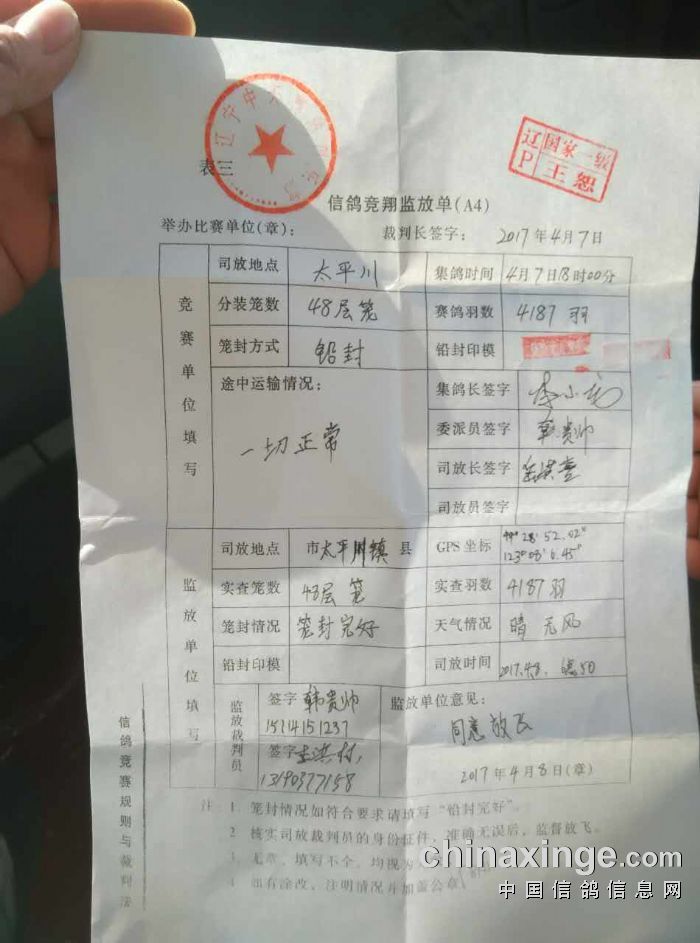 辽宁中
表三
辽 国家一级
P 王恕
信鸽竞翔监放单(A4)
举办比赛单位(章): 裁判长签字: 2017年4月7日
竞赛单位填写
司放地点 太平川 集鸽时间 4月7日18时00分
分装笼数 48层笼 赛鸽羽数 4187羽
笼封方式 铅封 铅封印模
途中运输情况: 集鸽长签字
一切正常 委派员签字 韩贵帅
司放长签字
司放员签字
监放单位填写
司放地点 市太平川镇县 GPS坐标 44°28′52.02″
123°03′6.45″
实查笼数 48层笼 实查羽数 4187羽
笼封情况 笼封完好 天气情况 晴 无风
铅封印模 司放时间 2017.4.8.
监放裁判员 签字 韩贵帅 监放单位意见:
1514151237 同意放飞
签字
13190377158 2017年4月8日(章)
注:1 笼封情况如符合要求请填写“铅封完好”。
2 核实司放裁判员的身份证件,准确无误后,监督放飞。
3 无章、填写不全,均视为
4 如有涂改,注明情况并加盖公章
信鸽竞赛规则与裁判法
chinaxinge.com
中国信鸽信息网